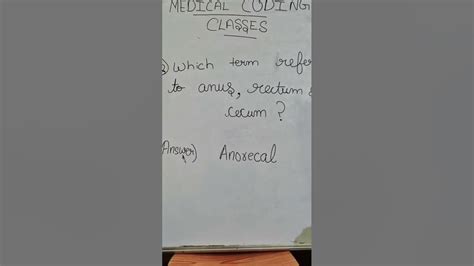 MEDICAL CODING
CLASSES
Which term refer
to anus, rectum &
cecum ?
Answer) Anorecal